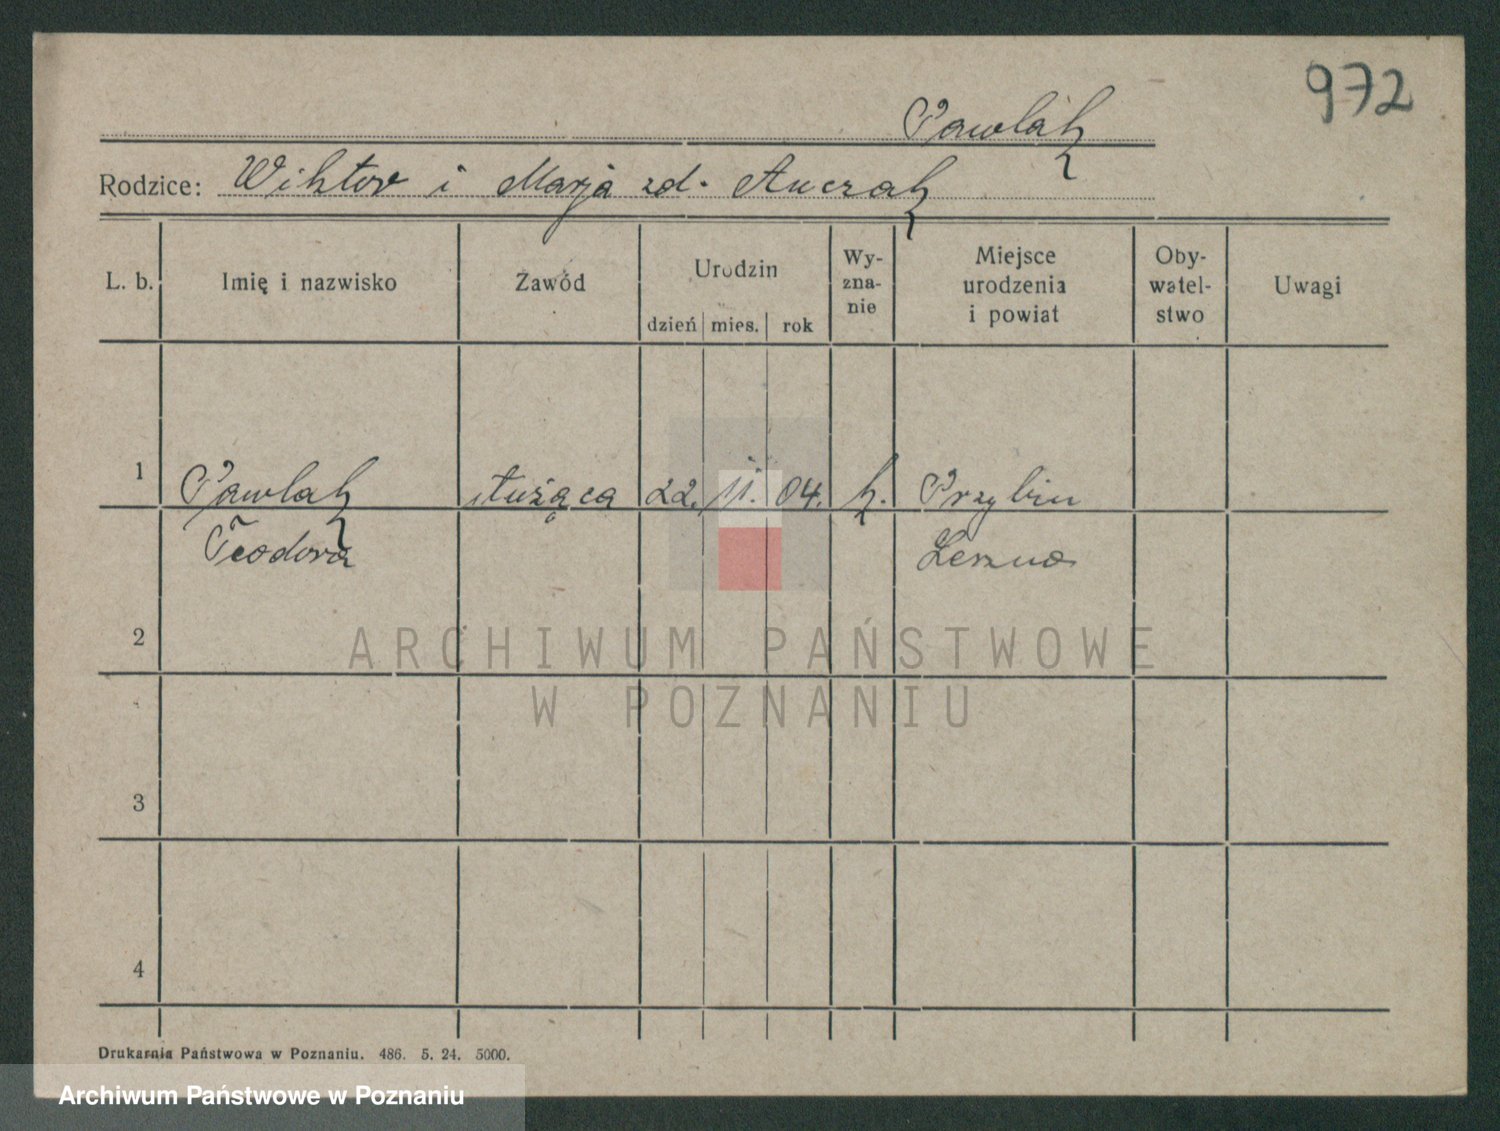 972
Pawlak
Rodzice: Wiktor i Marja zd. Anczak
L. b. Imię i nazwisko Zawód Urodzin dzień mies. rok Wy-zna-nie Miejsce urodzenia i powiat Oby-watel-stwo Uwagi
1 Pawlak służąca 22. 11. 04. k. Przybin
Teodora Leszno
2
ARCHIWUM PAŃSTWOWE
W POZNANIU
3
4
Drukarnia Państwowa w Poznaniu. 486. 5. 24. 5000.
Archiwum Państwowe w Poznaniu